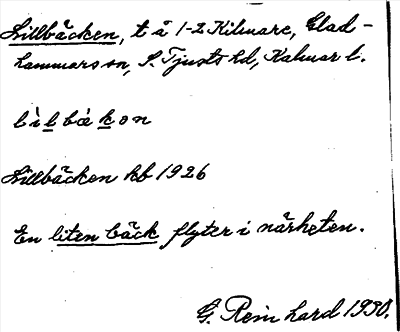 Lillbäcken, t å 1-2 Kilmare, Glad-
hammars sn, S. Tjusts hd, Kalmar l.
lìlbäkən
Lillbäcken kb 1926
En liten bäck flyter i närheten.
G. Reinhard 1930.